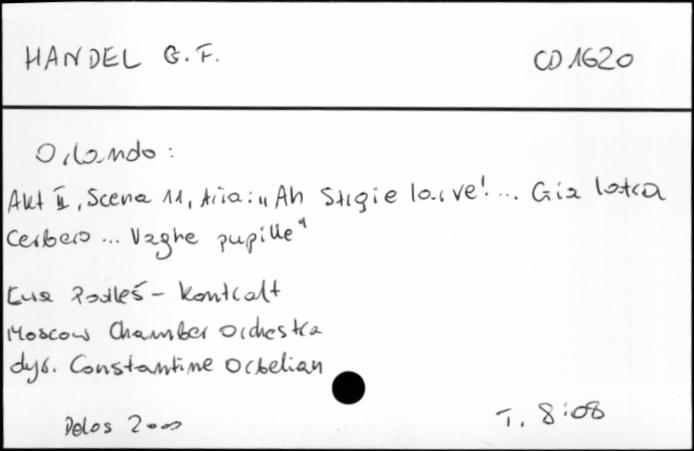 HANDEL G.F.
CD 1620
Orlando:
Akt II, Scena 11, Aria: „Ah Stigie larve! ... Gia latra
Cerbero ... Vaghe pupille"
Ewa Podleś - kontralt
Moscow Chamber Orchestra
dyr. Constantine Orbelian
Delos 2000
T. 8:08